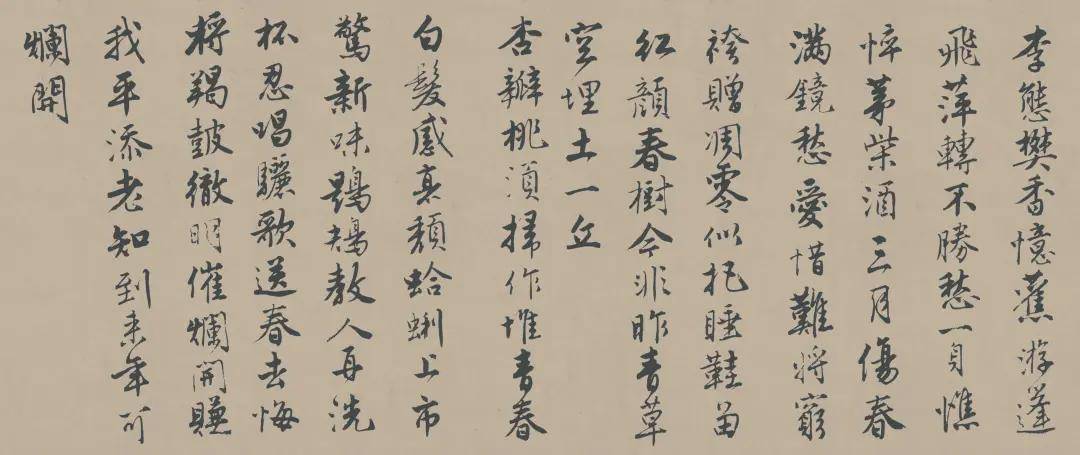 李態樊香憶舊游蓬
飛萍轉不勝愁一身憔
悴茅柴酒三月傷春
滿鏡愁愛惜難將窮
袴贈凋零似把睡鞋留
紅顏春樹今非昨青草
空埋土一丘
杏瓣桃須掃作堆青春
白髮感衰頹蛤蜊上市
驚新味鶗鴂教人再洗
杯忍唱驪歌送春去悔
將羯鼓徹明催爛開賺
我平添老知到來年可
爛開